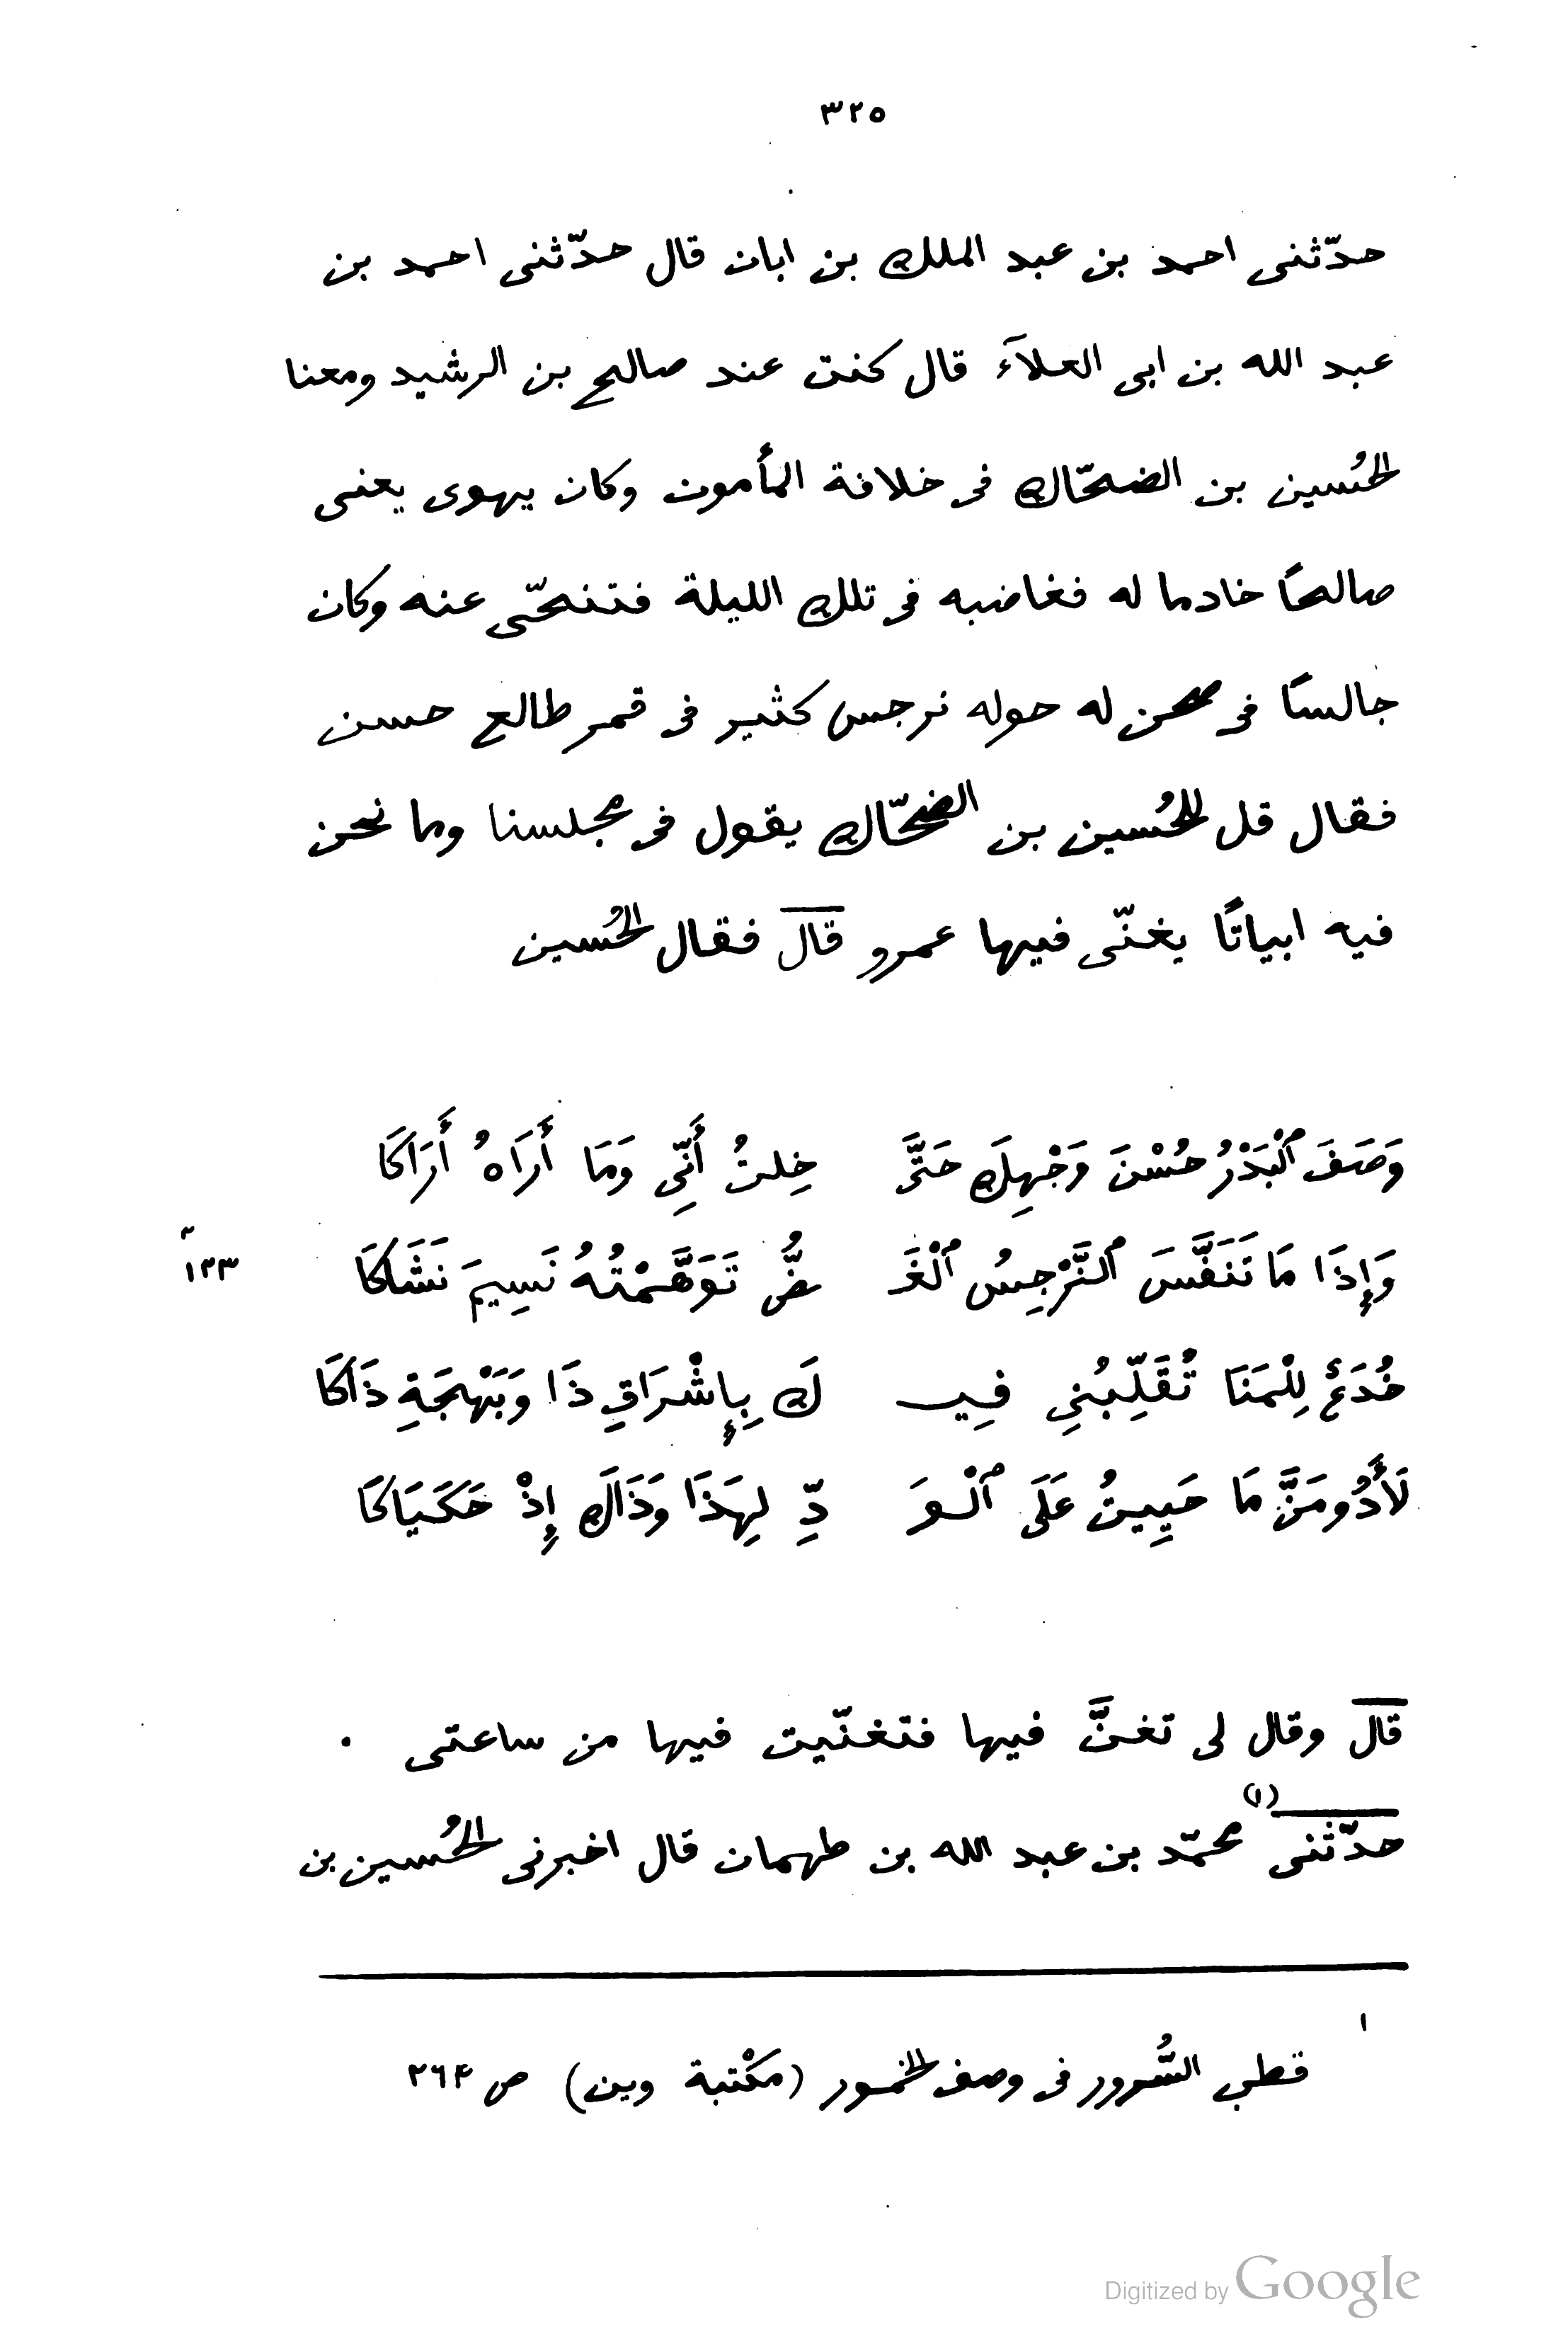 ٣٢٥
حدّثنى احمد بن عبد الملك بن ابان قال حدّثنى احمد بن
عبد الله بن ابى العلاَء قال كنت عند صالح بن الرشيد ومعنا
الحُسين بن الضحّاك فى خلافة المأمون وكان يهوى يعنى
صالحًا خادما له فغاضبه فى تلك الليلة فتنحّى عنه وكان
جالسًا فى صحن له حوله نرجس كثير فى قمر طالع حسن
فقال قل للحُسين بن الضحّاك يقول فى مجلسنا وما نحن
فيه ابياتًا يغنّى فيها عمرو قال فقال الحُسين
وَصَفَ ٱلْبَدْرُ حُسْنَ وَجْهِكَ حَتَّى خِلتُ أَنِّى وَمَا أَرَاهُ أَرَاكَا
وَإِذَا مَا تَنَفَّسَ ٱلنَّرْجِسُ ٱلْغَـ ـضُّ تَوَهَّمْتُهُ نَسِيمَ نَشَاكَا
١٣٣
خُدَعٌ لِلْمَنَا تُقَلِّبُنِي فِيـ ـكَ بِإِشْرَاقِ ذَا وَبَهْجَةِ ذَاكَا
لَأَدُومَنَّ مَا حَيِيتُ عَلَى ٱلْـوَ دِّ لِهَذَا وَذَاكَ إِذْ حَكَيَاكَا
قال وقال لى تغنَّ فيها فتغنّيت فيها من ساعتى .
حدّثنى (١) محمّد بن عبد الله بن طهمان قال اخبرنى الحُسين بن
١
قطب السُّرور فى وصف الخمور (مكْتبة وين) ص ٢٦٤
Digitized by Google